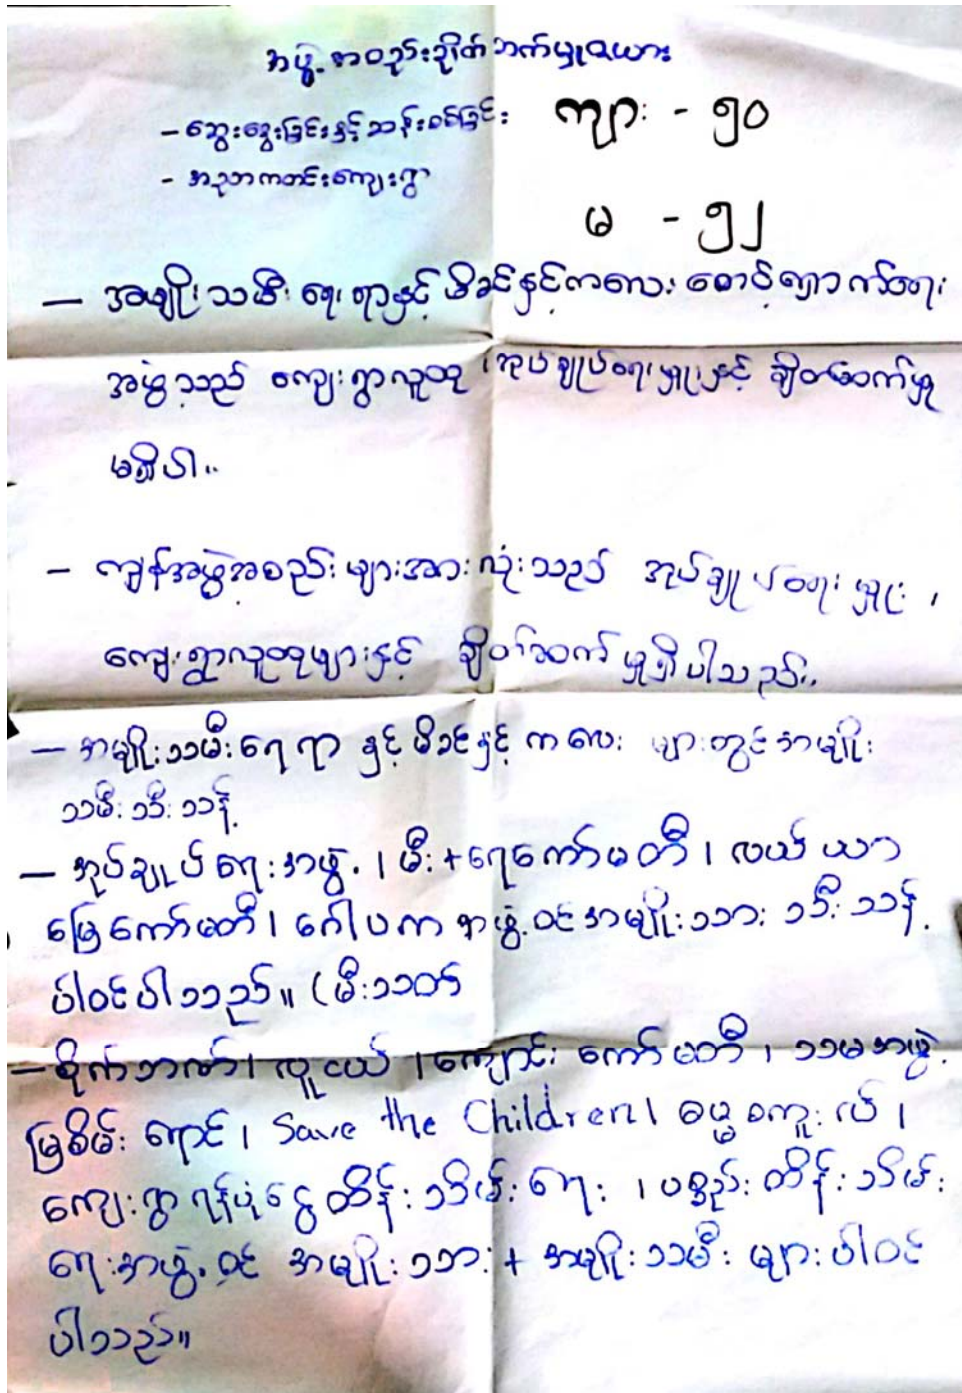 အဖွဲ့အစည်းဥိုက်ဘက်မှုဇယား
- ဆွေးနွေးခြင်းနှင့်ဆန်းစစ်ခြင်း ကျား - ၅၀
- အညာကတင်းကျေးရွာ
မ - ၅၂
- အမျိုးသမီးရေးရာနှင့် မိခင်နှင့်ကလေး စောင့်ရှောက်ရေး
အဖွဲ့သည် ကျေးရွာလူထု၊ အုပ်ချုပ်ရေးမှူးနှင့် ချိတ်ဆက်မှု
မရှိပါ။
- ကျန်အဖွဲ့အစည်းများအားလုံးသည် အုပ်ချုပ်ရေးမှူး ၊
ကျေးရွာလူထုများနှင့် ချိတ်ဆက်မှုရှိပါသည်။
- အမျိုးသမီးရေးရာ နှင့် မိခင်နှင့် ကလေး များတွင် အမျိုး
သမီး သီးသန့်
- အုပ်ချုပ်ရေးအဖွဲ့ ၊ မီး+ရေကော်မတီ ၊ လယ်ယာ
မြေကော်မတီ ၊ ဂေါပက အဖွဲ့ဝင်အမျိုးသား သီးသန့်
ပါဝင်ပါသည်။ (မီးသတ်
- စိုက်ဘဏ် ၊ လူငယ် ၊ ကျောင်းကော်မတီ ၊ သမအဖွဲ့
မြစိမ်းရောင် ၊ Save the Children ၊ ဓမ္မစကူးလ် ၊
ကျေးရွာရန်ပုံငွေထိန်းသိမ်းရေး ၊ ပစ္စည်းထိန်းသိမ်း
ရေးအဖွဲ့ဝင် အမျိုးသား + အမျိုးသမီး များပါဝင်
ပါသည်။